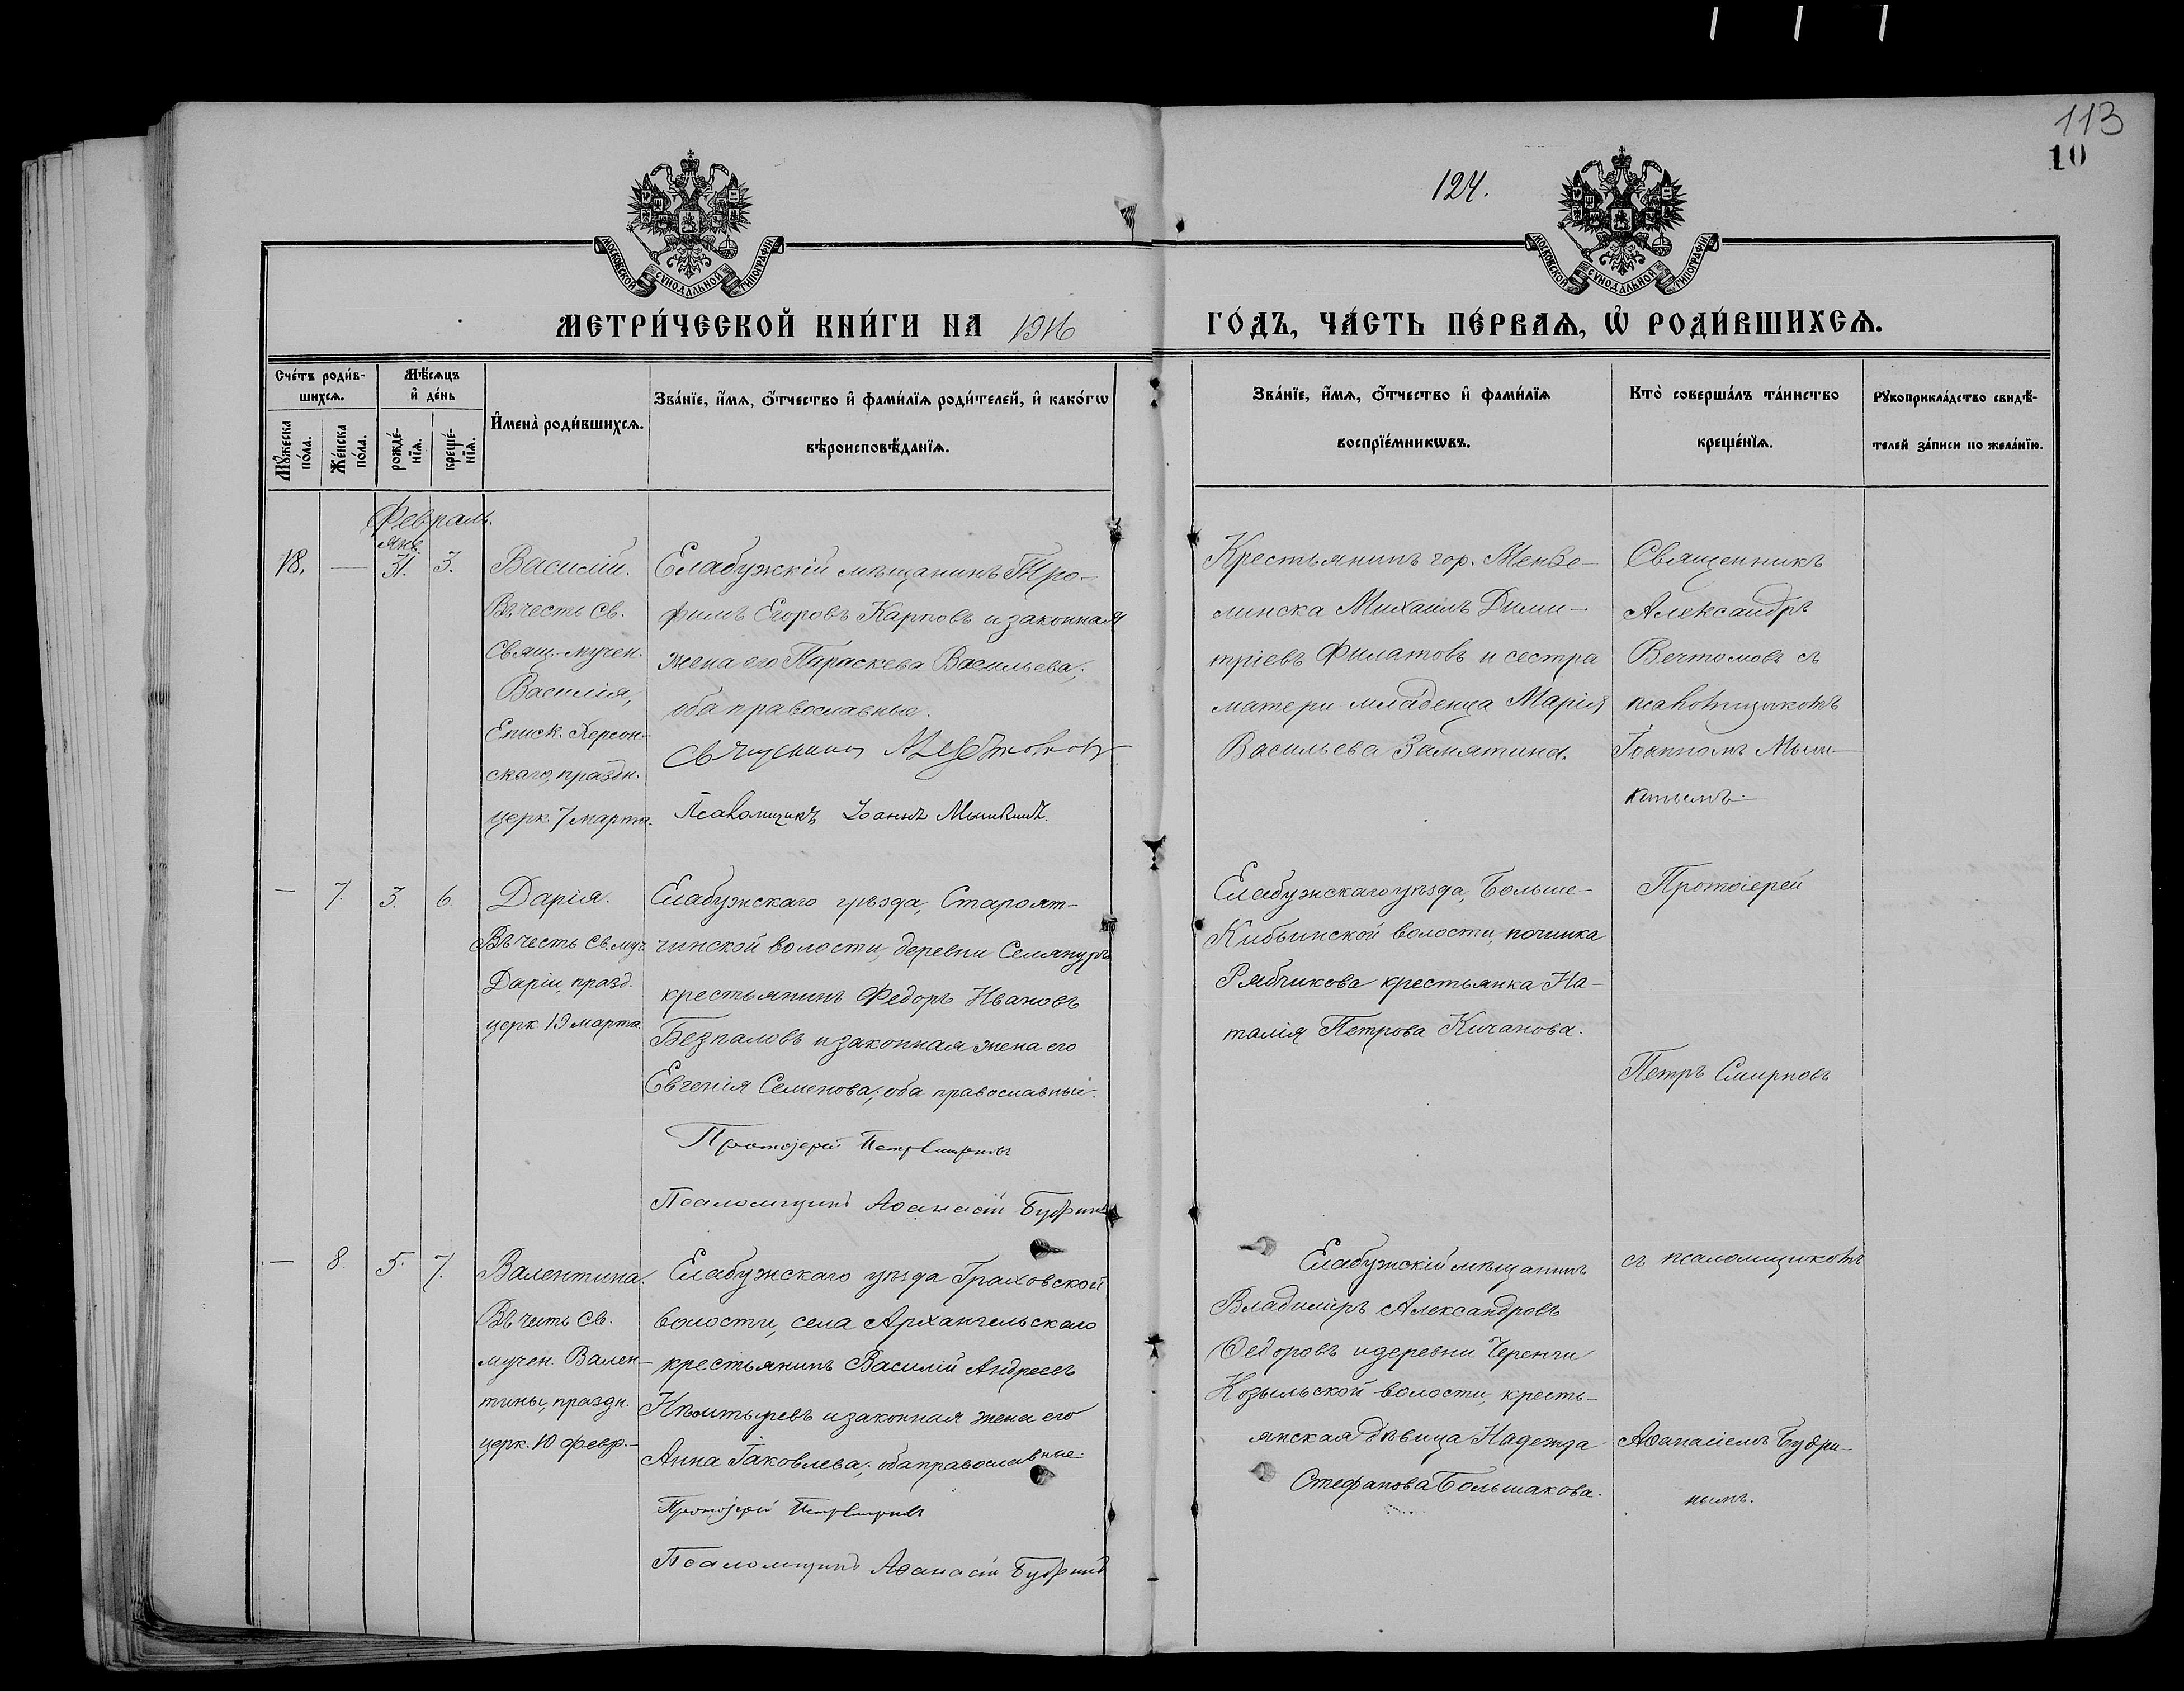 113
10
124.
МОСКОВСКОЙ СѴНОДАЛЬНОЙ ТИПОГРАФІИ
МОСКОВСКОЙ СѴНОДАЛЬНОЙ ТИПОГРАФІИ
МЕТРИ́ЧЕСКОЙ КНИ́ГИ НА 1916 ГО́ДЪ, ЧА́СТЬ ПЕ́РВАѦ, Ѡ҆ РОДИ́ВШИХСѦ.
Сче́тъ роди́в-
шихсѧ.
Мꙋ́жеска по́ла.
Же́нска по́ла.
Мѣ́сѧцъ
и҆ де́нь
рожде́-
нїѧ.
креще́-
нїѧ.
И҆мена̀ роди́вшихсѧ.
Зва́нїе, и҆́мѧ, ѻ҆́тчество и҆ фами́лїѧ роди́телей, и҆ како́гѡ
вѣроисповѣ́данїѧ.
Зва́нїе, и҆́мѧ, ѻ҆́тчество и҆ фами́лїѧ
воспрїе́мникѡвъ.
Кто̀ соверша́лъ та́инство
креще́нїѧ.
Рꙋкоприкла́дство свидѣ́-
телей за́писи по жела́нїю.
Февраль.
янв.
18. — 31. 3.
Василій.
Въ честь св.
Свящ.-мучен.
Василія,
Еписк. Херсон-
скаго, праздн.
церк. 7 марта.
Елабужскій мѣщанинъ Тро-
фимъ Егоровъ Карповъ и законная
жена его Параскева Васильева,
оба православные.
Священникъ
Псаломщикъ Іоаннъ Мышкинъ.
Крестьянинъ гор. Мензе-
линска Михаилъ Дими-
тріевъ Филатовъ и сестра
матери младенца Марія
Васильева Замятина.
Священникъ
Александръ
Вечтомовъ съ
псаломщикомъ
Іоанномъ Мыш-
кинымъ.
— 7. 3. 6.
Дарія.
Въ честь св. муч.
Даріи, празд.
церк. 19 марта.
Елабужскаго уѣзда, Старо
чинской волости, деревни
крестьянинъ Федоръ Ивановъ
Безпаловъ и законная жена его
Евгенія Семенова; оба православные.
Протоіерей Петръ Смирновъ
Псаломщикъ Аѳанасій Бубринъ
Елабужскаго уѣзда, Больше-
Кибьинской волости, починка
Рябчикова крестьянка На-
талія Петрова Кичанова.
Протоіерей
Петръ Смирновъ
— 8. 5. 7.
Валентина.
Въ честь св.
мучен. Вален-
тины, праздн.
церк. 10 февр.
Елабужскаго уѣзда Граховской
волости, села Архангельскаго
крестьянинъ Василій Андреевъ
и законная жена его
Анна Іаковлева; оба православные.
Протоіерей Петръ Смирновъ
Псаломщикъ Аѳанасій Бубринъ
Елабужскій мѣщанинъ
Владиміръ Александровъ
Ѳедоровъ и деревни Черенги
Козыльской волости, кресть-
янская дѣвица Надежда
Стефанова Большакова.
съ псаломщикомъ
Аѳанасіемъ Бубри-
нымъ.